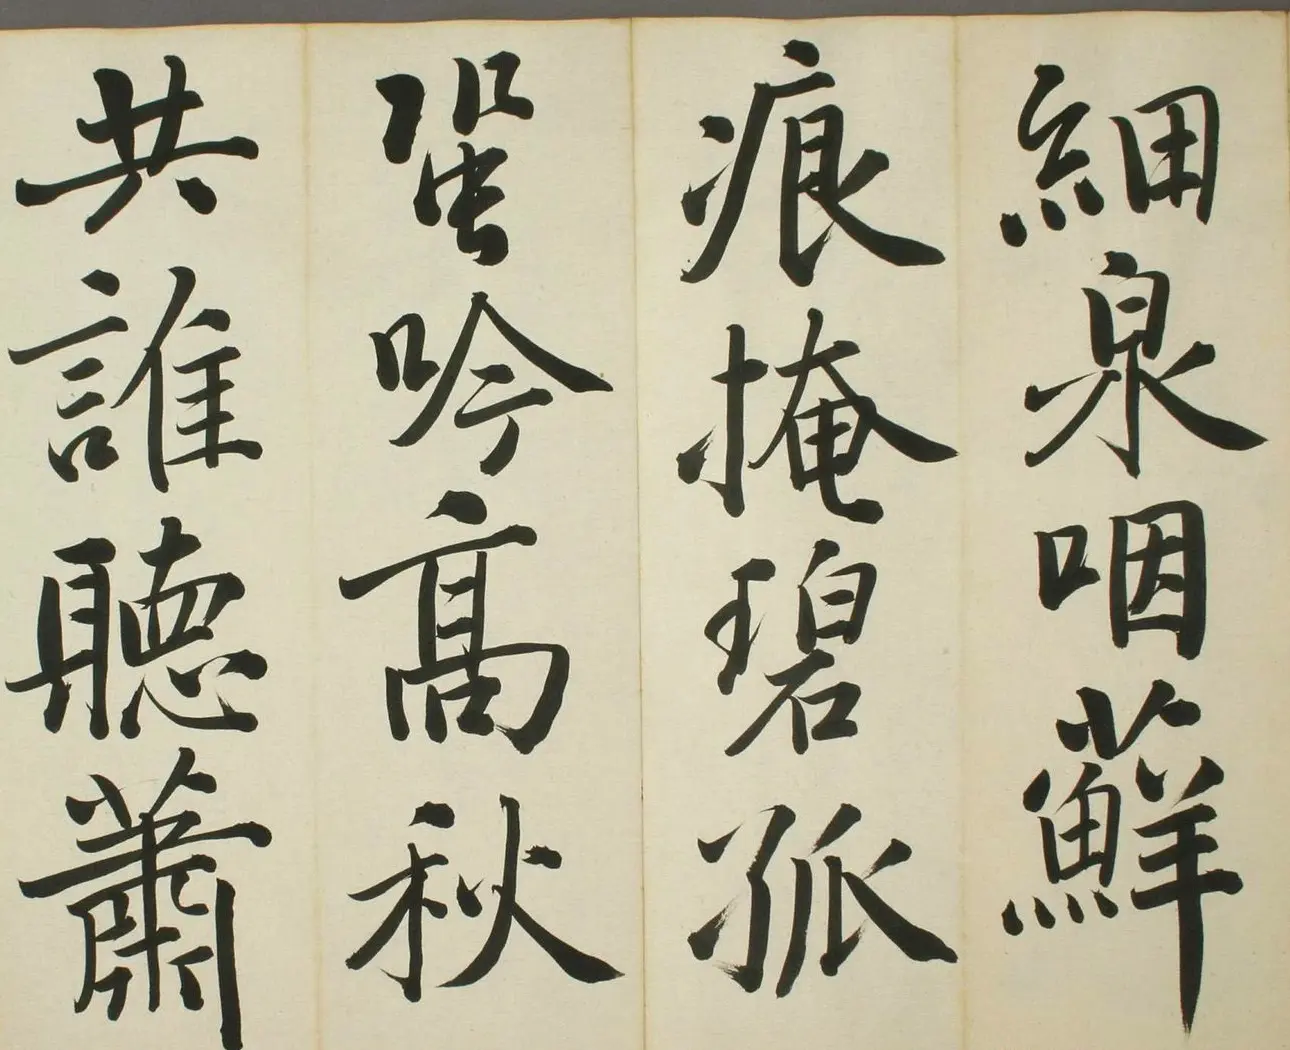 細泉咽蘚
痕掩碧孤
蛩吟高秋
共誰聽蕭